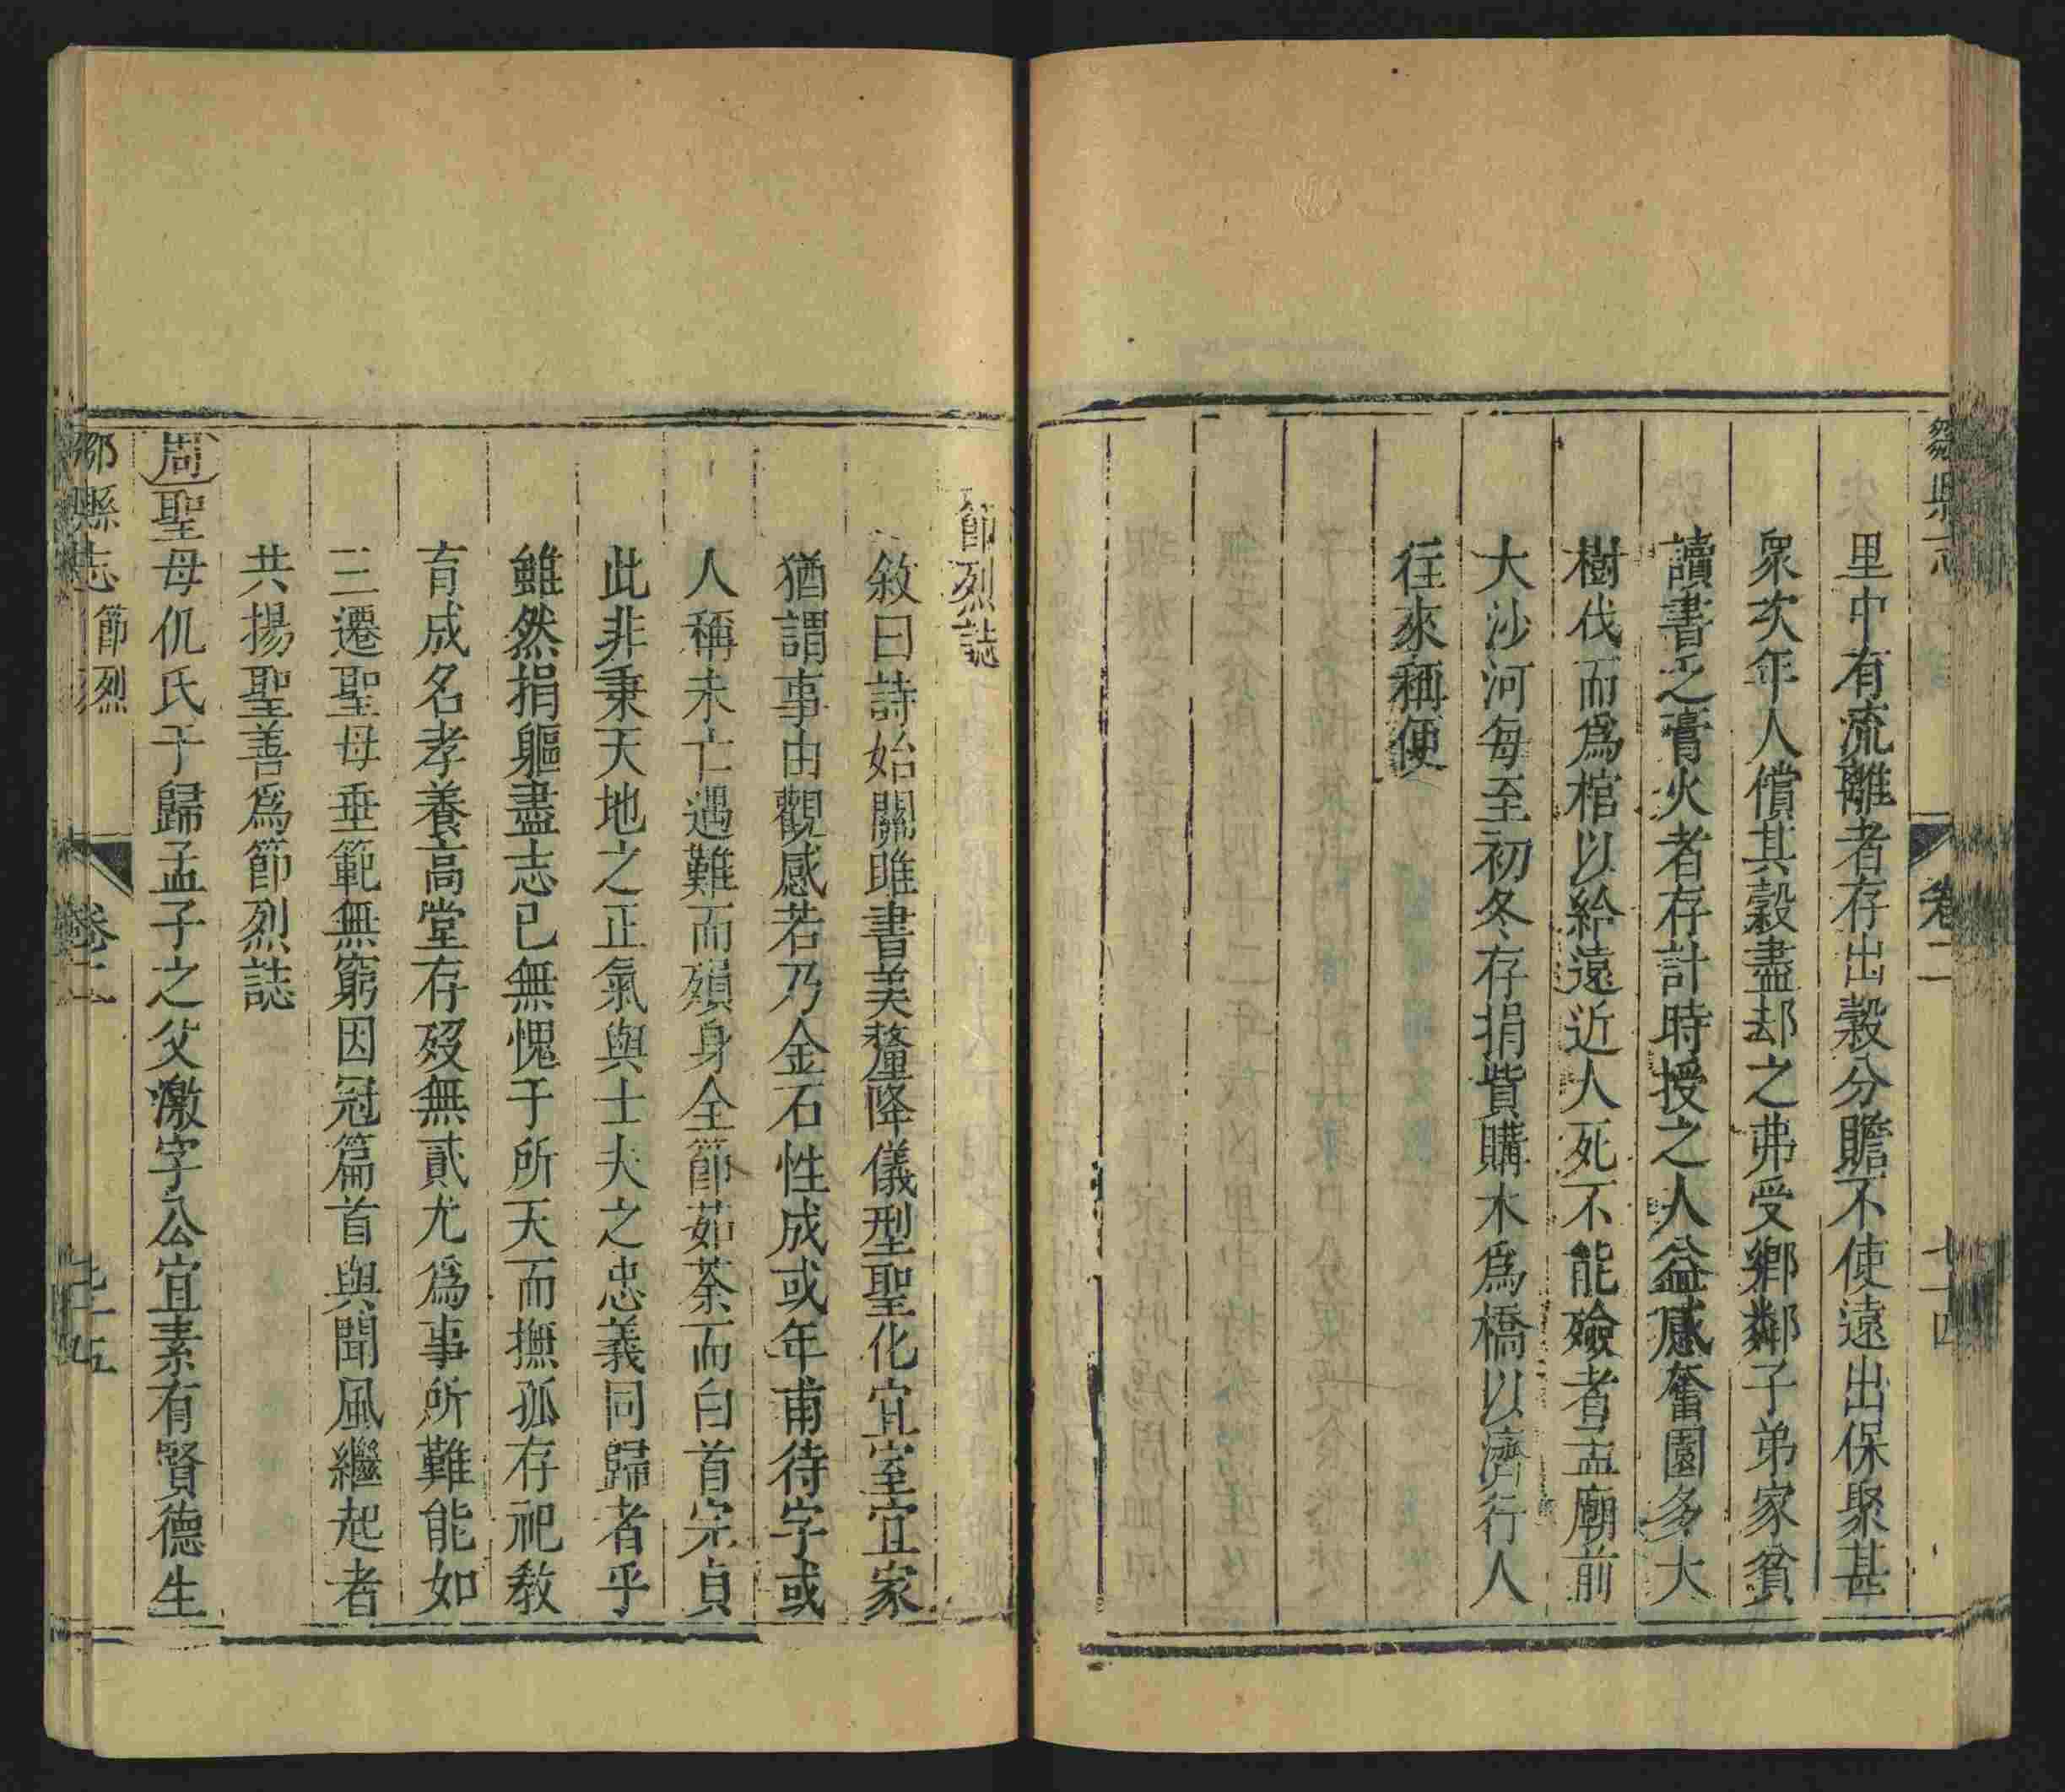 鄒縣志
卷二
七十四
里中有流離者存出穀分贍不使遠出保聚甚
衆次年人償其穀盡却之弗受鄉鄰子弟家貧
讀書乏膏火者存計時授之人益感奮園多大
樹伐而爲棺以給遠近人死不能殮者孟廟前
大沙河每至初冬存捐貲購木爲橋以濟行人
往來稱便
節烈誌
敘曰詩始關雎書美釐降儀型聖化宜室宜家
猶謂事由觀感若乃金石性成或年甫待字或
人稱未亡遇難而殞身全節茹荼而白首完貞
此非秉天地之正氣與士夫之忠義同歸者乎
雖然捐軀盡志已無愧于所天而撫孤存祀教
育成名孝養高堂存歿無貳尤爲事所難能如
三遷聖母垂範無窮因冠篇首與聞風繼起者
共揚聖善爲節烈誌
周聖母仉氏于歸孟子之父激字公宜素有賢德生
鄒縣志 節烈
卷二
七十五